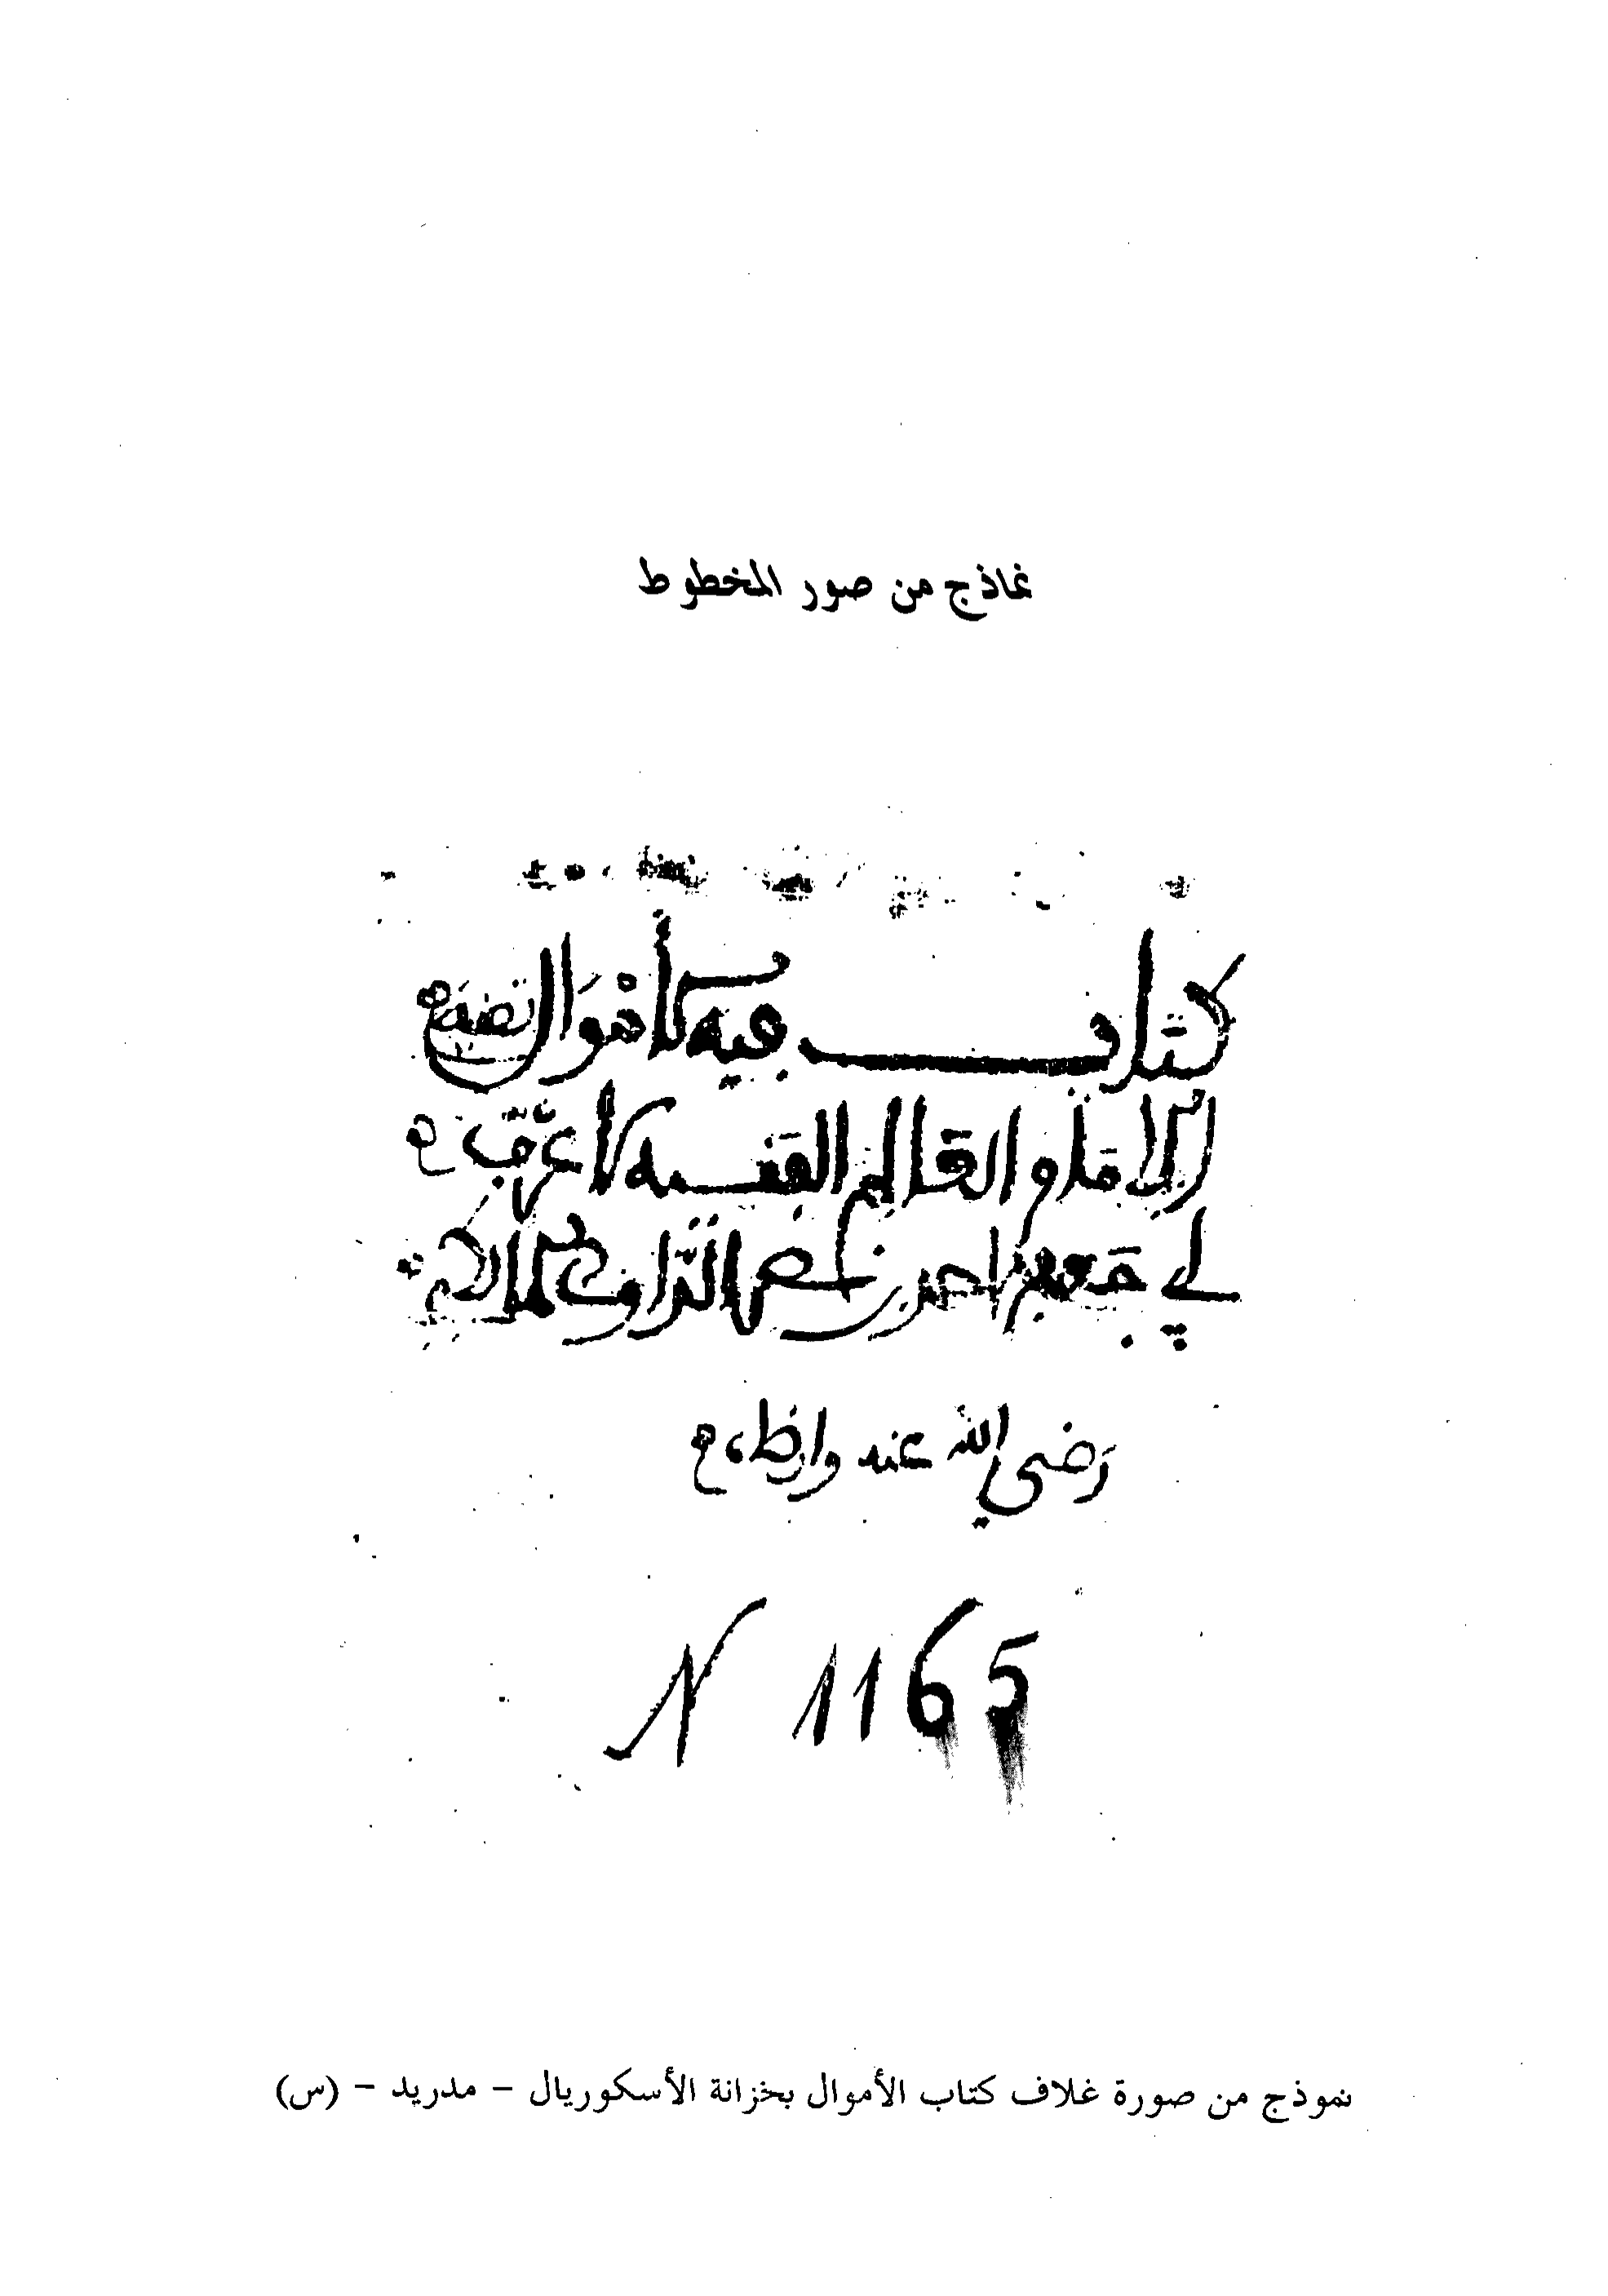 نماذج من صور المخطوط
كتاب فيه الأموال تصنيف
الإمام العالم الفقيه الأعرف
أبي جعفر أحمد بن نصر الداودي المالكي
رضي الله عنه وأرضاه
N 1165
نموذج من صورة غلاف كتاب الأموال بخزانة الأسكوريال - مدريد - (س)